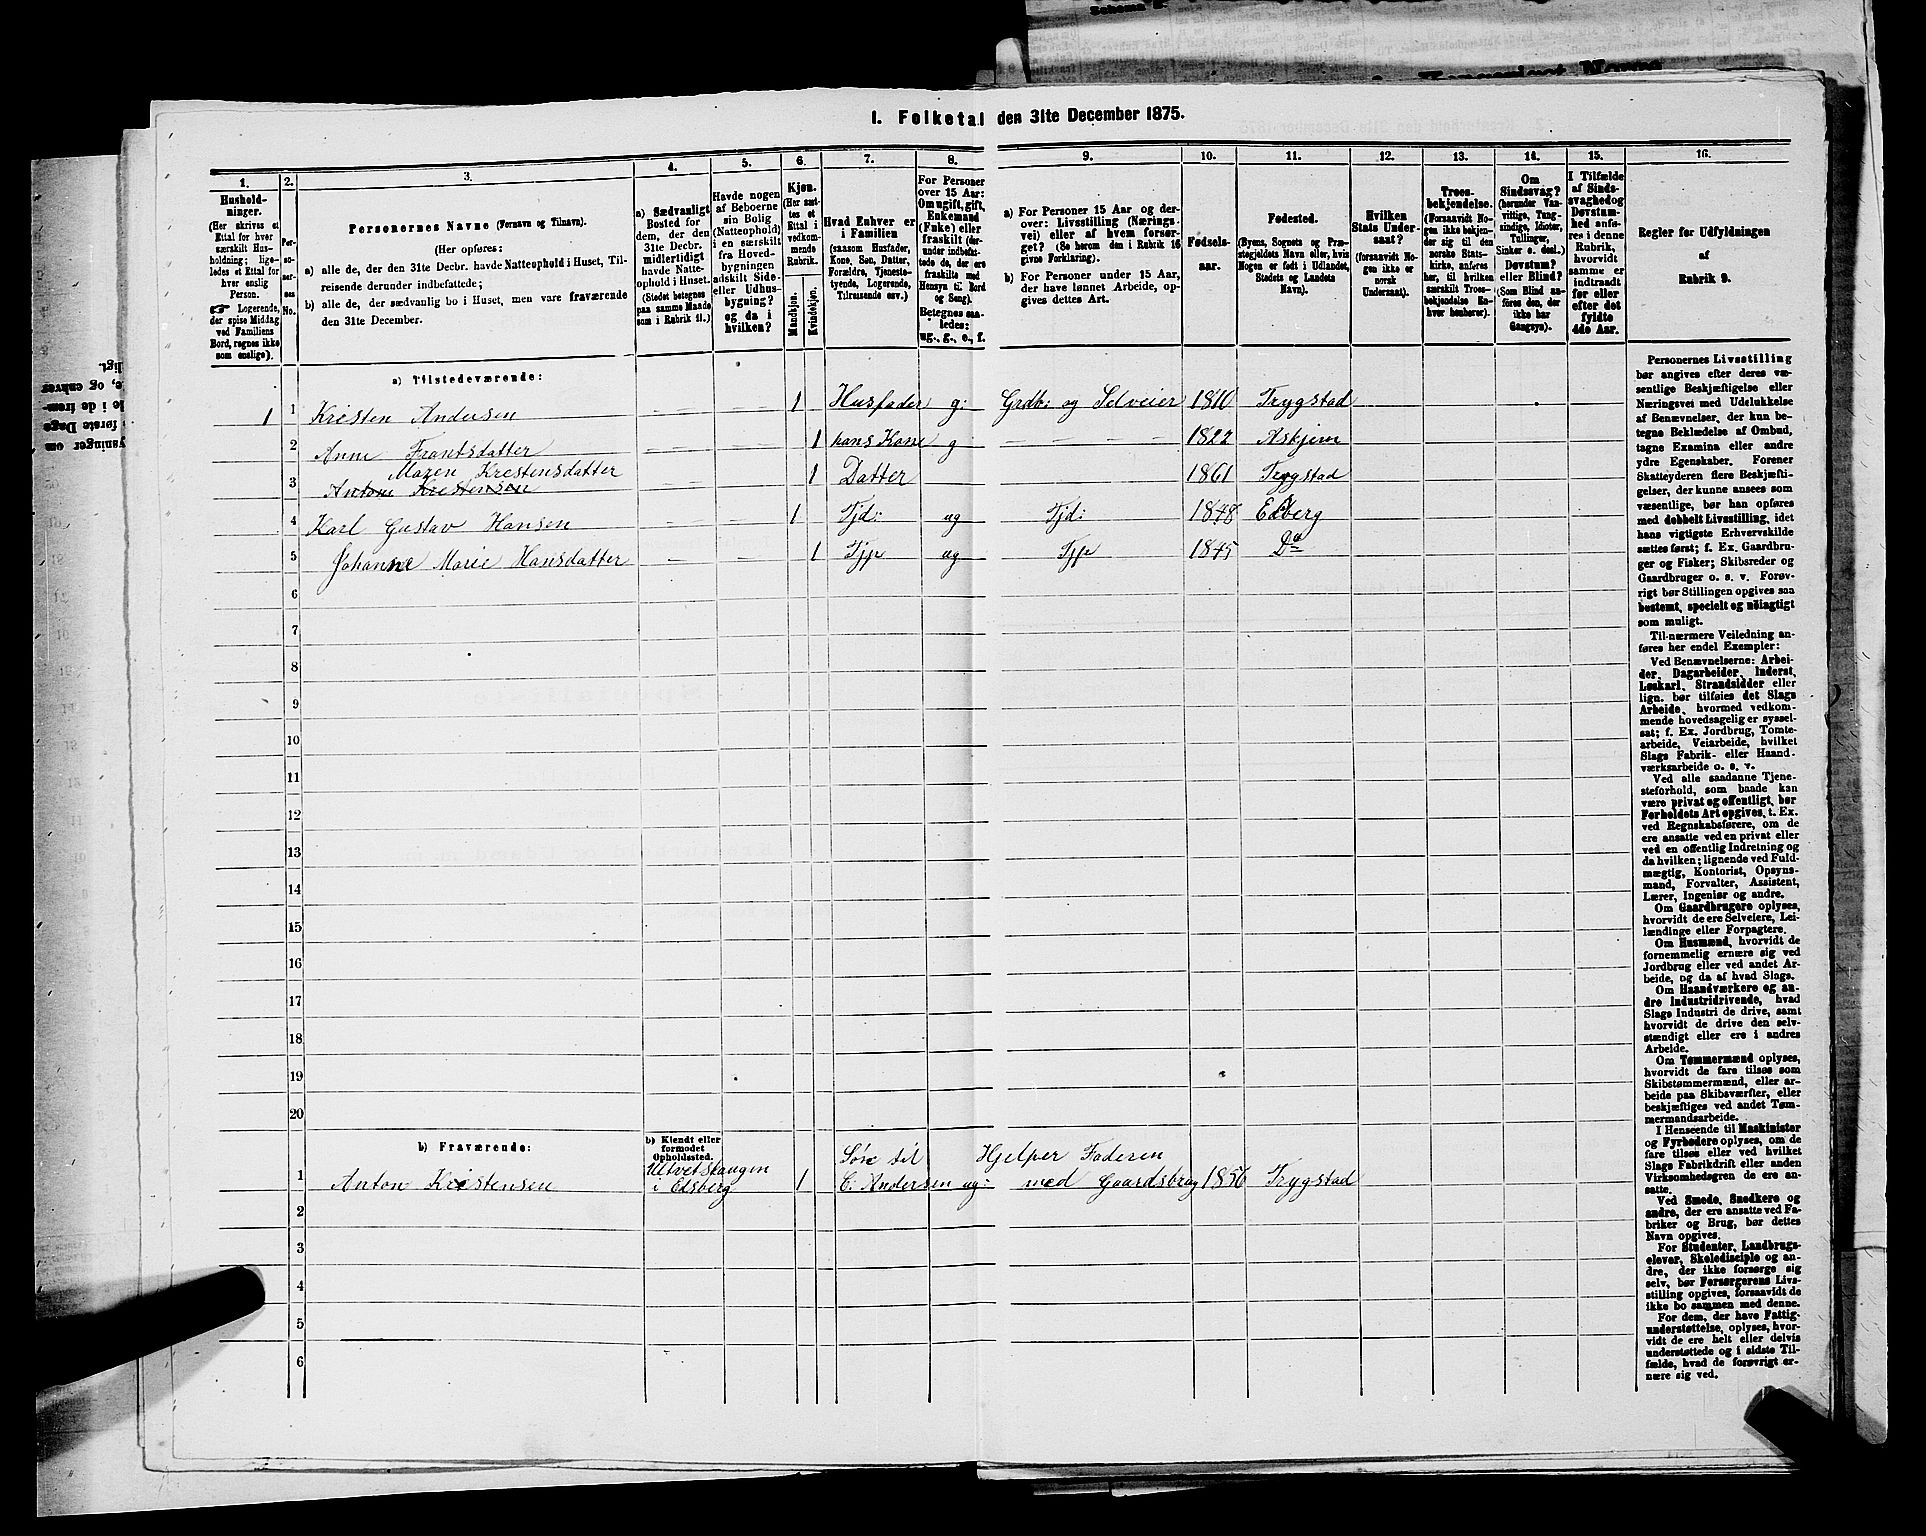 I. Folketal den 31te December 1875.
1. 2. 3. 4. 5. 6. 7. 8. 9. 10. 11. 12. 13. 14. 15. 16.
Hushold-
ninger.
(Her skrives et
Ettal for hver
særskilt Hus-
holdning; lige-
ledes et Ettal for
hver enslig
Person.
☞ Logerende,
der spise Middag
ved Familiens
Bord, regnes ikke
som enslige).
Per-
so-
ner-
nes
No.
Personernes Navne (Fornavn og Tilnavn).
(Her opføres:
a) alle de, der den 31te Decbr. havde Natteophold i Huset, Til-
reisende derunder indbefattede;
b) alle de, der sædvanlig bo i Huset, men vare fraværende
den 31te December.
a) Sædvanligt
Bosted for
dem, der den
31te Decbr.
midlertidigt
havde Natte-
ophold i Huset.
(Stedet betegnes
paa samme Maade
som i Rubrik 11.)
Havde nogen
af Beboerne
sin Bolig
(Natteophold)
i en særskilt
fra Hoved-
bygningen
adskilt Side-
eller Udhus-
bygning?
og da i
hvilken?
Kjøn.
(Her sæt-
tes et
Ettal i
vedkom-
mende
Rubrik.
Mandkjøn.
Kvindekjøn.
Hvad Enhver er
i Familien
(saasom Husfader,
Kone, Søn, Datter,
Forældre, Tjeneste-
tyende, Logerende,
Tilreisende osv.)
For Personer
over 15 Aar:
Om ugift, gift,
Enkemand
(Enke) eller
fraskilt (der-
under indbefat-
tede de, der ere
fraskilte med
Hensyn til Bord
og Seng).
Betegnes saa-
ledes:
ug., g., e., f.
a) For Personer 15 Aar og der-
over: Livsstilling (Nærings-
vei) eller af hvem forsør-
get? (Se herom den i Rubrik 16
givne Forklaring).
b) For Personer under 15 Aar,
der have lønnet Arbeide, op-
gives dettes Art.
Fødsels-
aar.
Fødested.
(Byens, Sognets og Præ-
stegjeldets Navn eller, hvis
Nogen er født i Udlandet,
Stedets og Landets
Navn).
Hvilken
Stats Under-
saat?
(forsaavidt No-
gen ikke er
norsk
Undersaat).
Troes-
bekjendelse.
(Forsaavidt No-
gen ikke bekjen-
der sig til den
norske Stats-
kirke, anføres
her, til hvilken
særskilt Troes-
bekjendelse En-
hver henhører).
Om
Sindssvag?
(herunder Van-
vittige, Tung-
sindige, Idioter,
Tullinger,
Sinker o. desl.)
Døvstum?
eller Blind?
(Som Blind an-
føres den, der
ikke har
Gangsyn).
I Tilfælde
af Sinds-
svaghed og
Døvstum-
hed anfø-
res i denne
Rubrik,
hvorvidt
samme er
indtraadt
før eller
efter det
fyldte
4de Aar.
Regler før Udfyldningen
af
Rubrik 9.
a) Tilstedeværende:
1 1 Kristen Andersen — — 1 Husfader g: Grdb: og Selveier 1810 Trygstad
2 Anne Frantsdatter — — 1 hans Kone g — — — — 1822 Askjem
Maren Kristensdatter
3 Anton Kristensen 1 Datter 1861 Trygstad
4 Karl Gustav Hansen — — 1 Tjd: ug Tjd: 1848 Edberg
5 Johanne Marie Hansdatter — — 1 Tjp ug Tjp 1845 Do
6
7
8
9
10
11
12
13
14
15
16
17
18
19
20
b) Fraværende:
b) Kjendt eller
formodet
Opholdssted.
1 Anton Kristensen i Edsberg 1 Søn til C. Andersen ug: Hjelper Faderen med Gaardsbrug 1856 Trygstad
2
3
4
5
6
Personernes Livsstilling
bør angives efter deres væ-
sentlige Beskjæftigelse eller
Næringsvei med Udelukkelse
af Benævnelser, der kun be-
tegne Beklædelse af Ombud,
tagne Examina eller andre
ydre Egenskaber. Forener
Skatteyderen flere Beskjæfti-
gelser, der kunne ansees som
væsentlige, bør han opføres
med dobbelt Livsstilling, idet
hans vigtigste Erhvervskilde
sættes først; f. Ex. Gaardbru-
ger og Fisker; Skibsreder og
Gaardbruger o. s. v. Forøv-
rigt bør Stillingen opgives saa
bestemt, specielt og nöiagtigt
som muligt.
Til nærmere Veiledning an-
føres her endel Exempler:
Ved Benævnelserne: Arbei-
der, Dagarbeider, Inderst,
Løskarl, Strandsidder eller
lign. bør tilføies det Slags
Arbeide, hvormed vedkom-
mende hovedsagelig er syssel-
sat; f. Ex. Jordbrug, Tomte-
arbeide, Veiarbeide, hvilket
Slags Fabrik- eller Haand-
værksarbeide o. s. v.
Ved alle saadanne Tjene-
steforhold, som baade kan
være privat og offentligt, bør
Forholdets Art opgives, t. Ex.
ved Regnskabsførere, om de
ere ansatte ved en privat eller
ved en offentlig Indretning og
da hvilken; lignende ved Fuld-
mægtig, Kontorist, Opsyns-
mand, Forvalter, Assistent,
Lærer, Ingeniør og andre.
Om Gaardbrugere oplyses,
hvorvidt de ere Selveiere, Lei-
lændinge eller Forpagtere.
Om Husmænd, hvorvidt de
fornemmelig ernære sig ved
Jordbrug eller ved andet Ar-
beide, og da af hvad Slags.
Om Haandværkere og an-
dre Industridrivende, hvad
Slags Industri de drive, samt
hvorvidt de drive den selv-
stændigt eller ere i andres
Arbeide.
Om Tømmermænd oplyses,
hvorvidt de fare tilsøs som
Skibstømmermænd, eller ar-
beide paa Skibsværfter, eller
beskjæftiges ved andet Tøm-
mermandsarbeide.
I Henseende til Maskinister
og Fyrbødere oplyses, om de
fare tilsøs eller ved hvilket
Slags Fabrikdrift eller anden
Virksomhedsgren de ere an-
satte.
Ved Smede, Snedkere og
andre, der ere ansatte ved Fa-
briker og Brug, bør dettes
Navn opgives.
For Studenter, Landbrugs-
elever, Skoledisciple og an-
dre, der ikke forsørge sig
selv, bør Forsørgerens Livs-
stilling opgives, forsaavidt de
ikke bo sammen med denne.
For dem, der have Fattig-
understøttelse, oplyses, hvor-
vidt de ere helt eller delvis
understøttede og i sidste Til-
fælde, hvad de forøvrigt er-
nære sig ved.